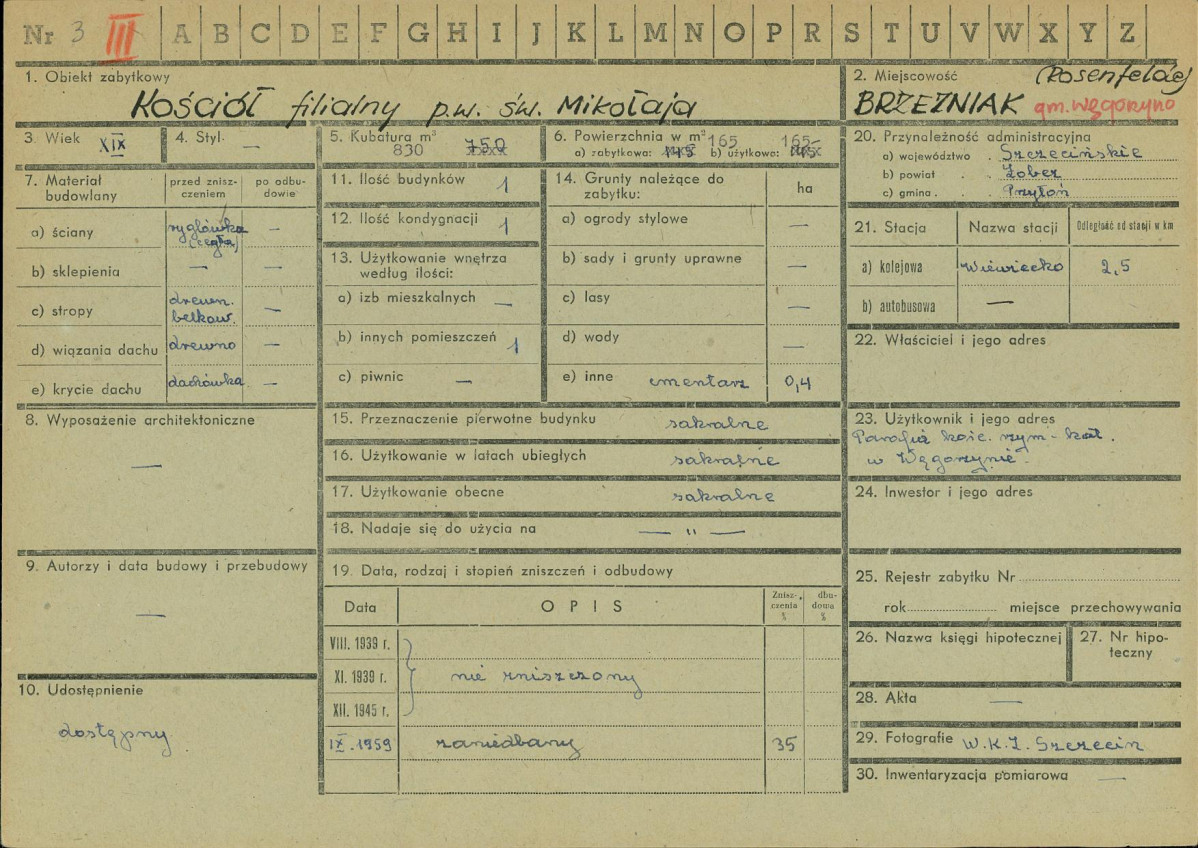 Nr 3 III A B C D E F G H I J K L M N O P R S T U V W X Y Z
1. Obiekt zabytkowy
Kościół filialny p.w. św. Mikołaja
2. Miejscowość (Rosenfelde)
BRZEŹNIAK gm. Węgorzyno
3. Wiek XIX
4. Styl. —
5. Kubatura m³
830 750
6. Powierzchnia w m² 165 165
a) zabytkowa: 145 b) użytkowa: 145
7. Materiał budowlany
przed zniszczeniem
po odbudowie
a) ściany ryglówka (cegła) —
b) sklepienia — —
c) stropy drewn. belkow. —
d) wiązania dachu drewno —
e) krycie dachu dachówka —
8. Wyposażenie architektoniczne
—
9. Autorzy i data budowy i przebudowy
—
10. Udostępnienie
dostępny
11. Ilość budynków 1
12. Ilość kondygnacji 1
13. Użytkowanie wnętrza
według ilości:
a) izb mieszkalnych —
b) innych pomieszczeń 1
c) piwnic —
14. Grunty należące do
zabytku: ha
a) ogrody stylowe —
b) sady i grunty uprawne —
c) lasy —
d) wody —
e) inne cmentarz 0,4
15. Przeznaczenie pierwotne budynku sakralne
16. Użytkowanie w latach ubiegłych sakralne
17. Użytkowanie obecne sakralne
18. Nadaje się do użycia na — " —
19. Data, rodzaj i stopień zniszczeń i odbudowy
Data OPIS Zniszczenia % dbudowa %
VIII. 1939 r.
XI. 1939 r. nie zniszczony
XII. 1945 r.
IX. 1959 zaniedbany 35
20. Przynależność administracyjna
a) województwo . Szczecińskie
b) powiat . . Łobez
c) gmina . . Przytoń
21. Stacja Nazwa stacji Odległość od stacji w km
a) kolejowa Wiewiecko 2,5
b) autobusowa —
22. Właściciel i jego adres
23. Użytkownik i jego adres
Parafia kośc. rzym-kat.
w Węgorzynie.
24. Inwestor i jego adres
25. Rejestr zabytku Nr
rok miejsce przechowywania
26. Nazwa księgi hipotecznej
27. Nr hipo-
teczny
28. Akta —
29. Fotografie W.K.Z. Szczecin
30. Inwentaryzacja pomiarowa —